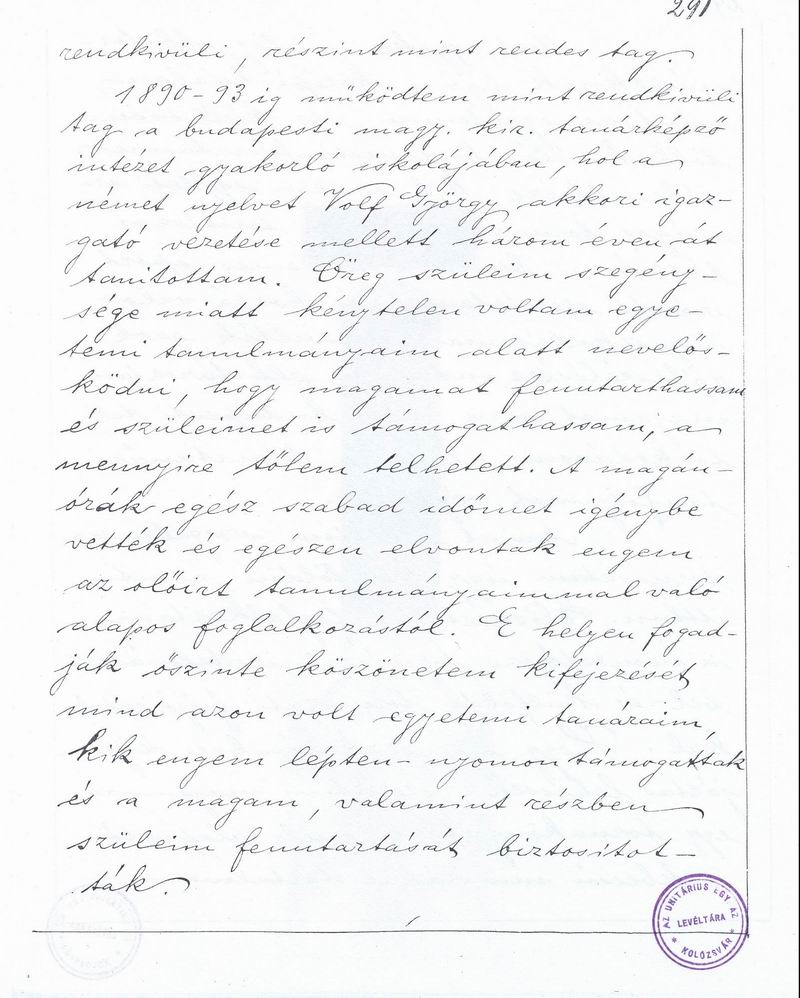 291
rendkivüli, részint mint rendes tag.
1890-93 ig működtem mint rendkivüli
tag a budapesti magy. kir. tanárképző
intézet gyakorló iskolájában, hol a
német nyelvet Volf György akkori igaz-
gató vezetése mellett három éven át
tanitottam. Öreg szüleim szegény-
sége miatt kénytelen voltam egye-
temi tanulmányaim alatt nevelős-
ködni, hogy magamat fenntarthassam
és szüleimet is támogathassam, a
mennyire tőlem telhetett. A magán-
órák egész szabad időmet igénybe
vették és egészen elvontak engem
az előirt tanulmányaimmal való
alapos foglalkozástól. E helyen fogad-
ják őszinte köszönetem kifejezését
mind azon volt egyetemi tanáraim,
kik engem lépten-nyomon támogattak
és a magam, valamint részben
szüleim fenntartását biztositot-
ták.
AZ UNITÁRIUS EGYHÁZ
LEVÉLTÁRA
* KOLOZSVÁR *